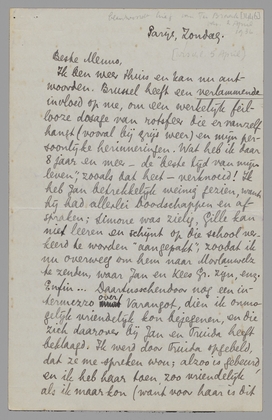 Parijs, Zondag.
Beste Menno,
Ik ben weer thuis en kan nu ant-
woorden. Brussel heeft een verlammende
invloed op me, om een werkelijk feil-
looze dosage van rotsfeer die er vanzelf
hangt (vooral bij grijs weer) en mijn per-
soonlijke herinneringen. Wat heb ik daar
8 jaar en meer – de "beste tijd van mijn
leven", zooals dat heet – verknoeid! Ik
heb Jan betrekkelijk weinig gezien, want
hij had allerlei boodschappen en af-
spraken; Simone was ziek, Gille kan
niet leeren en schijnt op die school ver-
keerd te worden "aangepakt", zoodat ik
nu overweeg om hem naar Morlanwelz
te zenden, waar Jan en Kees Gr. zijn, enz.
Enfin... Daartusschendoor nog een in-
termezzo over Varangot, dien ik onmo-
gelijk vriendelijk kon bejegenen, en die
zich daarover bij Jan en Truida heeft
beklaagd. Ik werd door Truida opgebeld,
dat ze me spreken wou; alzoo is gebeurd,
en ik heb haar toen zoo vriendelijk
als ik maar kon (want voor haar is dit